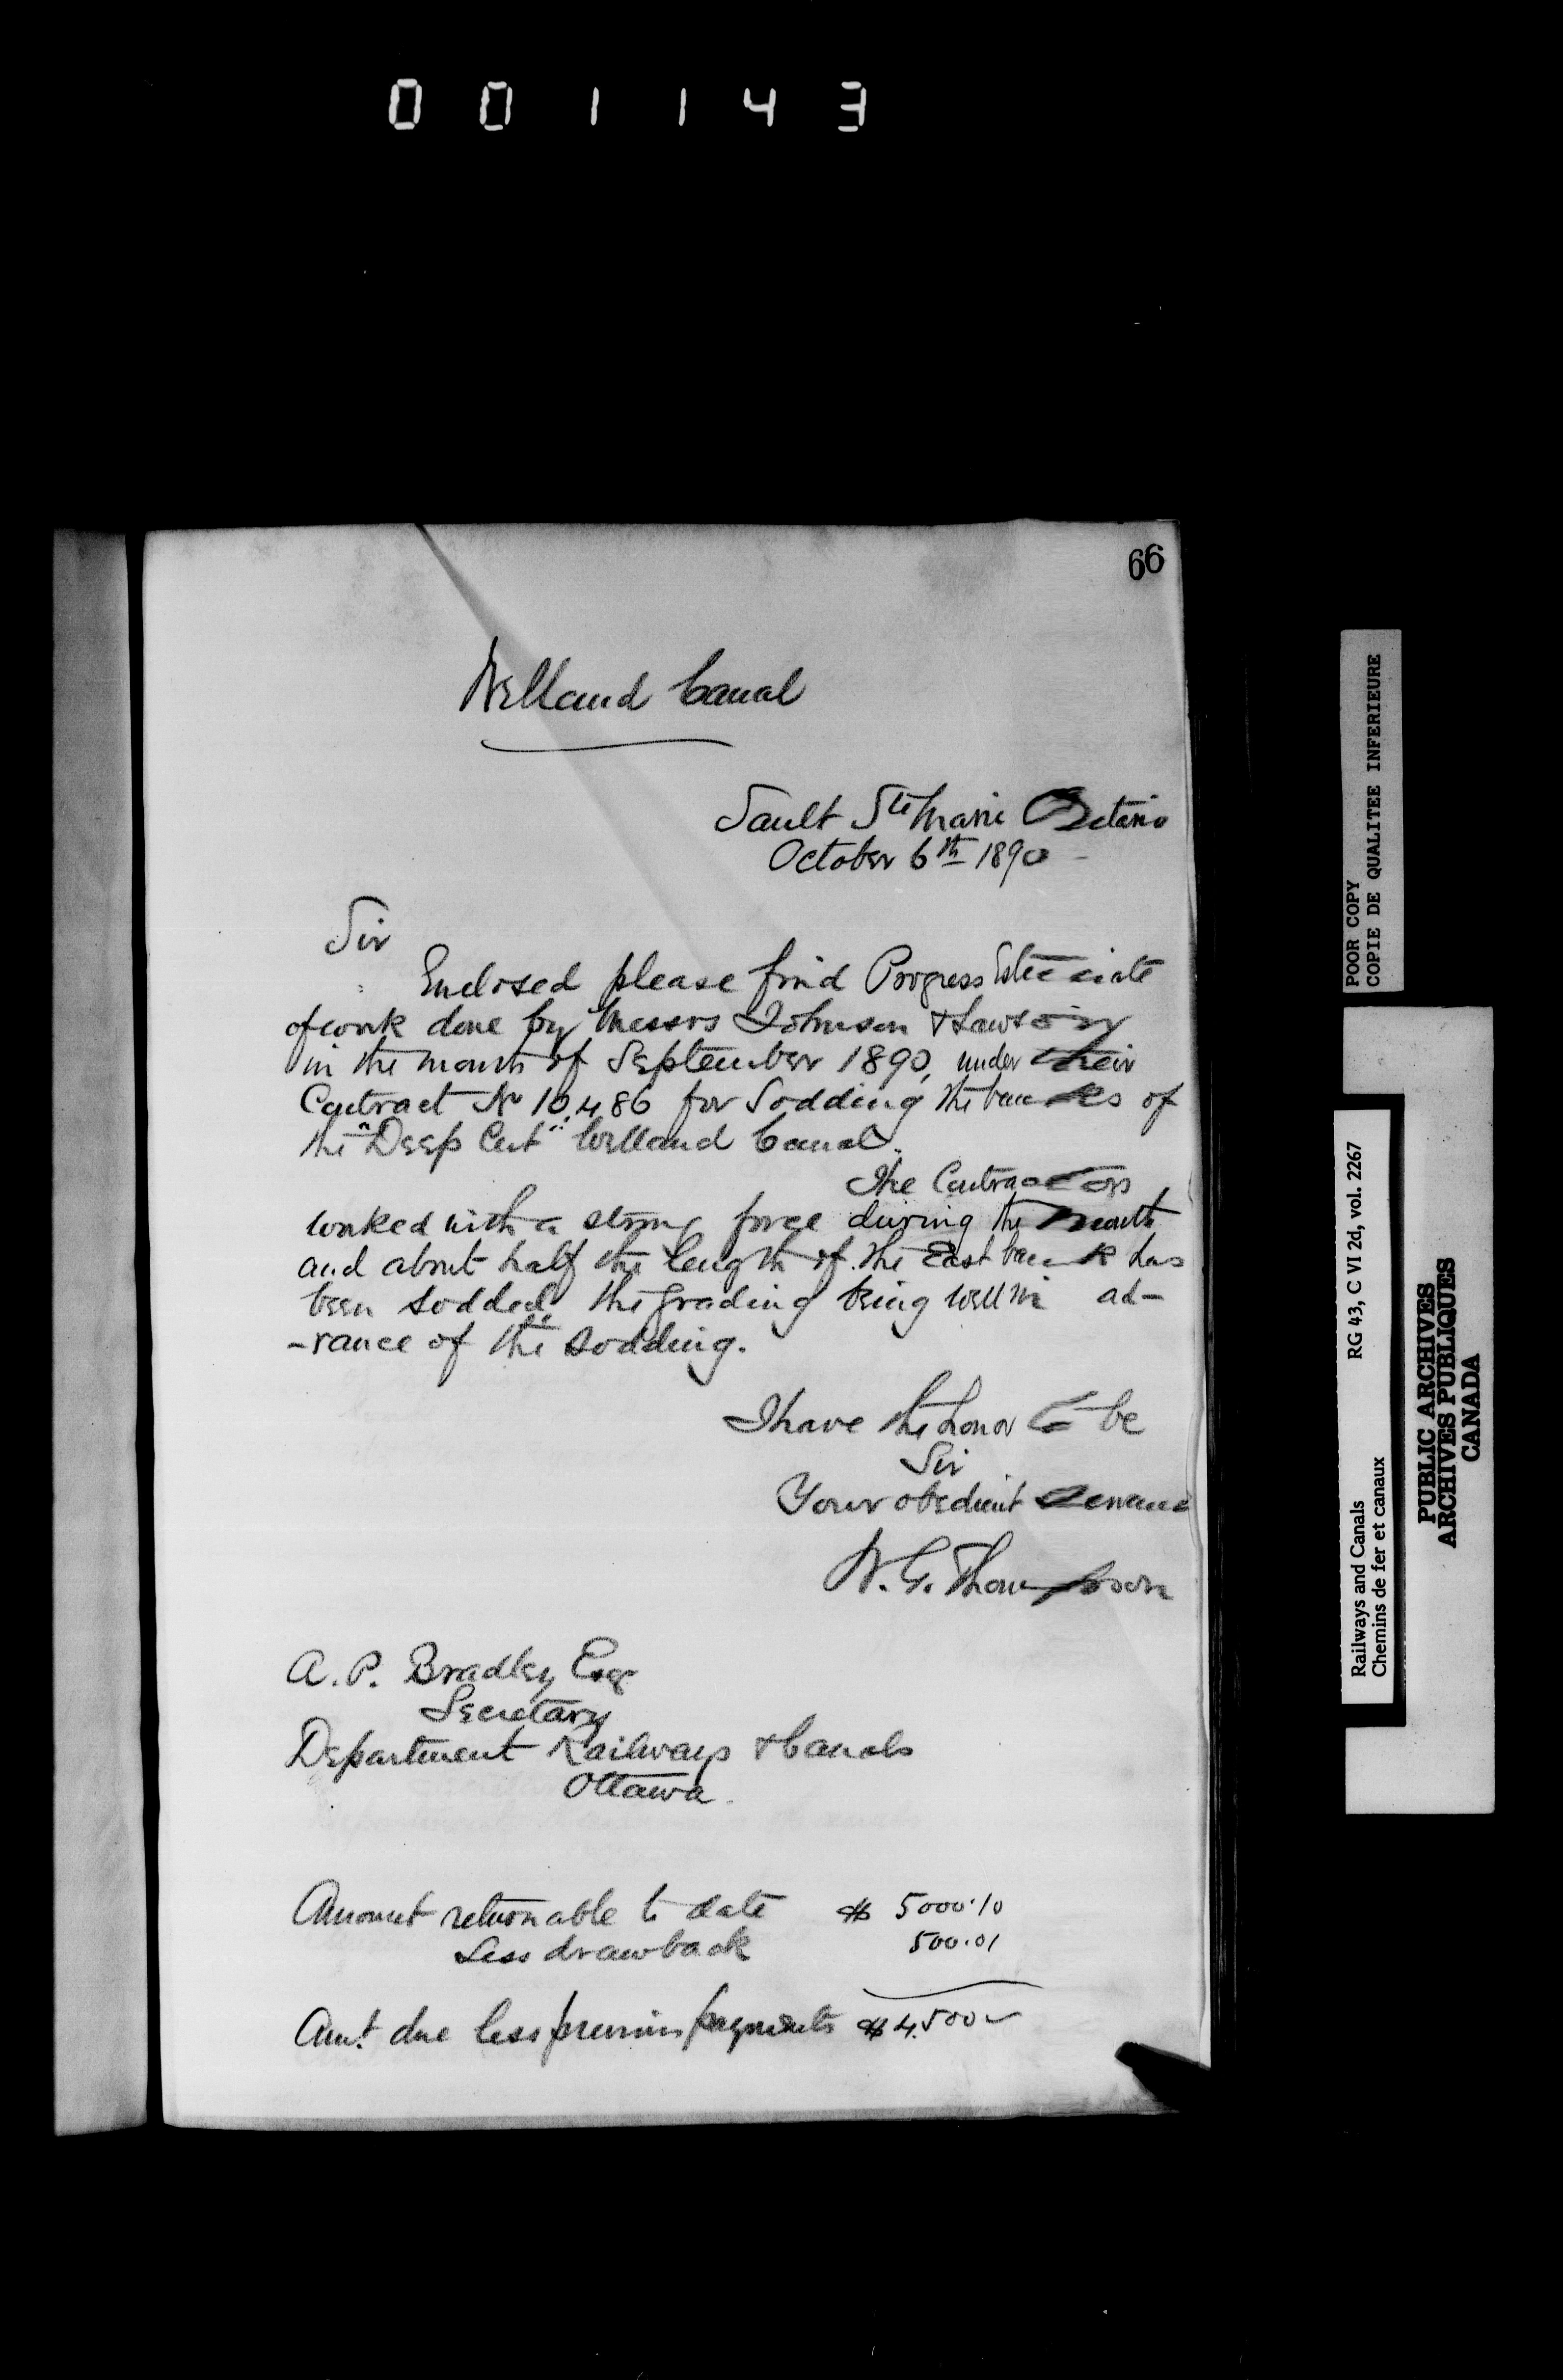 001143
66
Welland Canal
Sault Ste Marie Ontario
October 6th 1890
Sir
Enclosed please find Progress Estimate
of work done by Messrs Johnson & Lawson
in the month of September 1890, under their
Contract No 10,486 for Sodding the banks of
the "Deep Cut" Welland Canal.
The Contractors
worked with a strong force during the month
and about half the length of the East bank has
been sodded, the grading being well in ad-
-vance of the sodding.
I have the honor to be
Sir
Your obedient servant
W. G. Thompson
A. P. Bradley Esq
Secretary
Department Railways & Canals
Ottawa.
Amount returnable to date $ 5000.10
Less drawback 500.01
Amt. due less previous payments $ 4.500
POOR COPY
COPIE DE QUALITEE INFERIEURE
Railways and Canals RG 43, C VI 2d, vol. 2267
Chemins de fer et canaux
PUBLIC ARCHIVES
ARCHIVES PUBLIQUES
CANADA